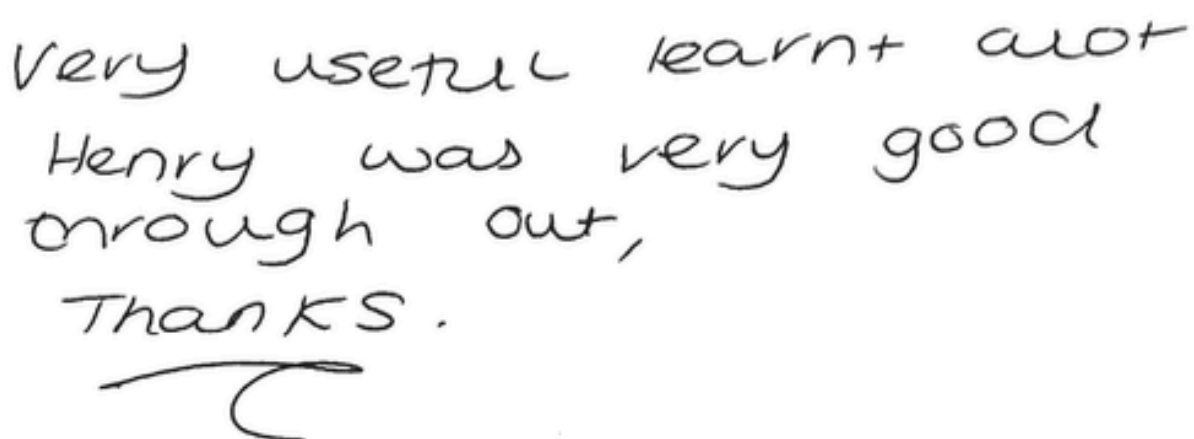 Very useful learnt alot
Henry was very good
through out,
Thanks.